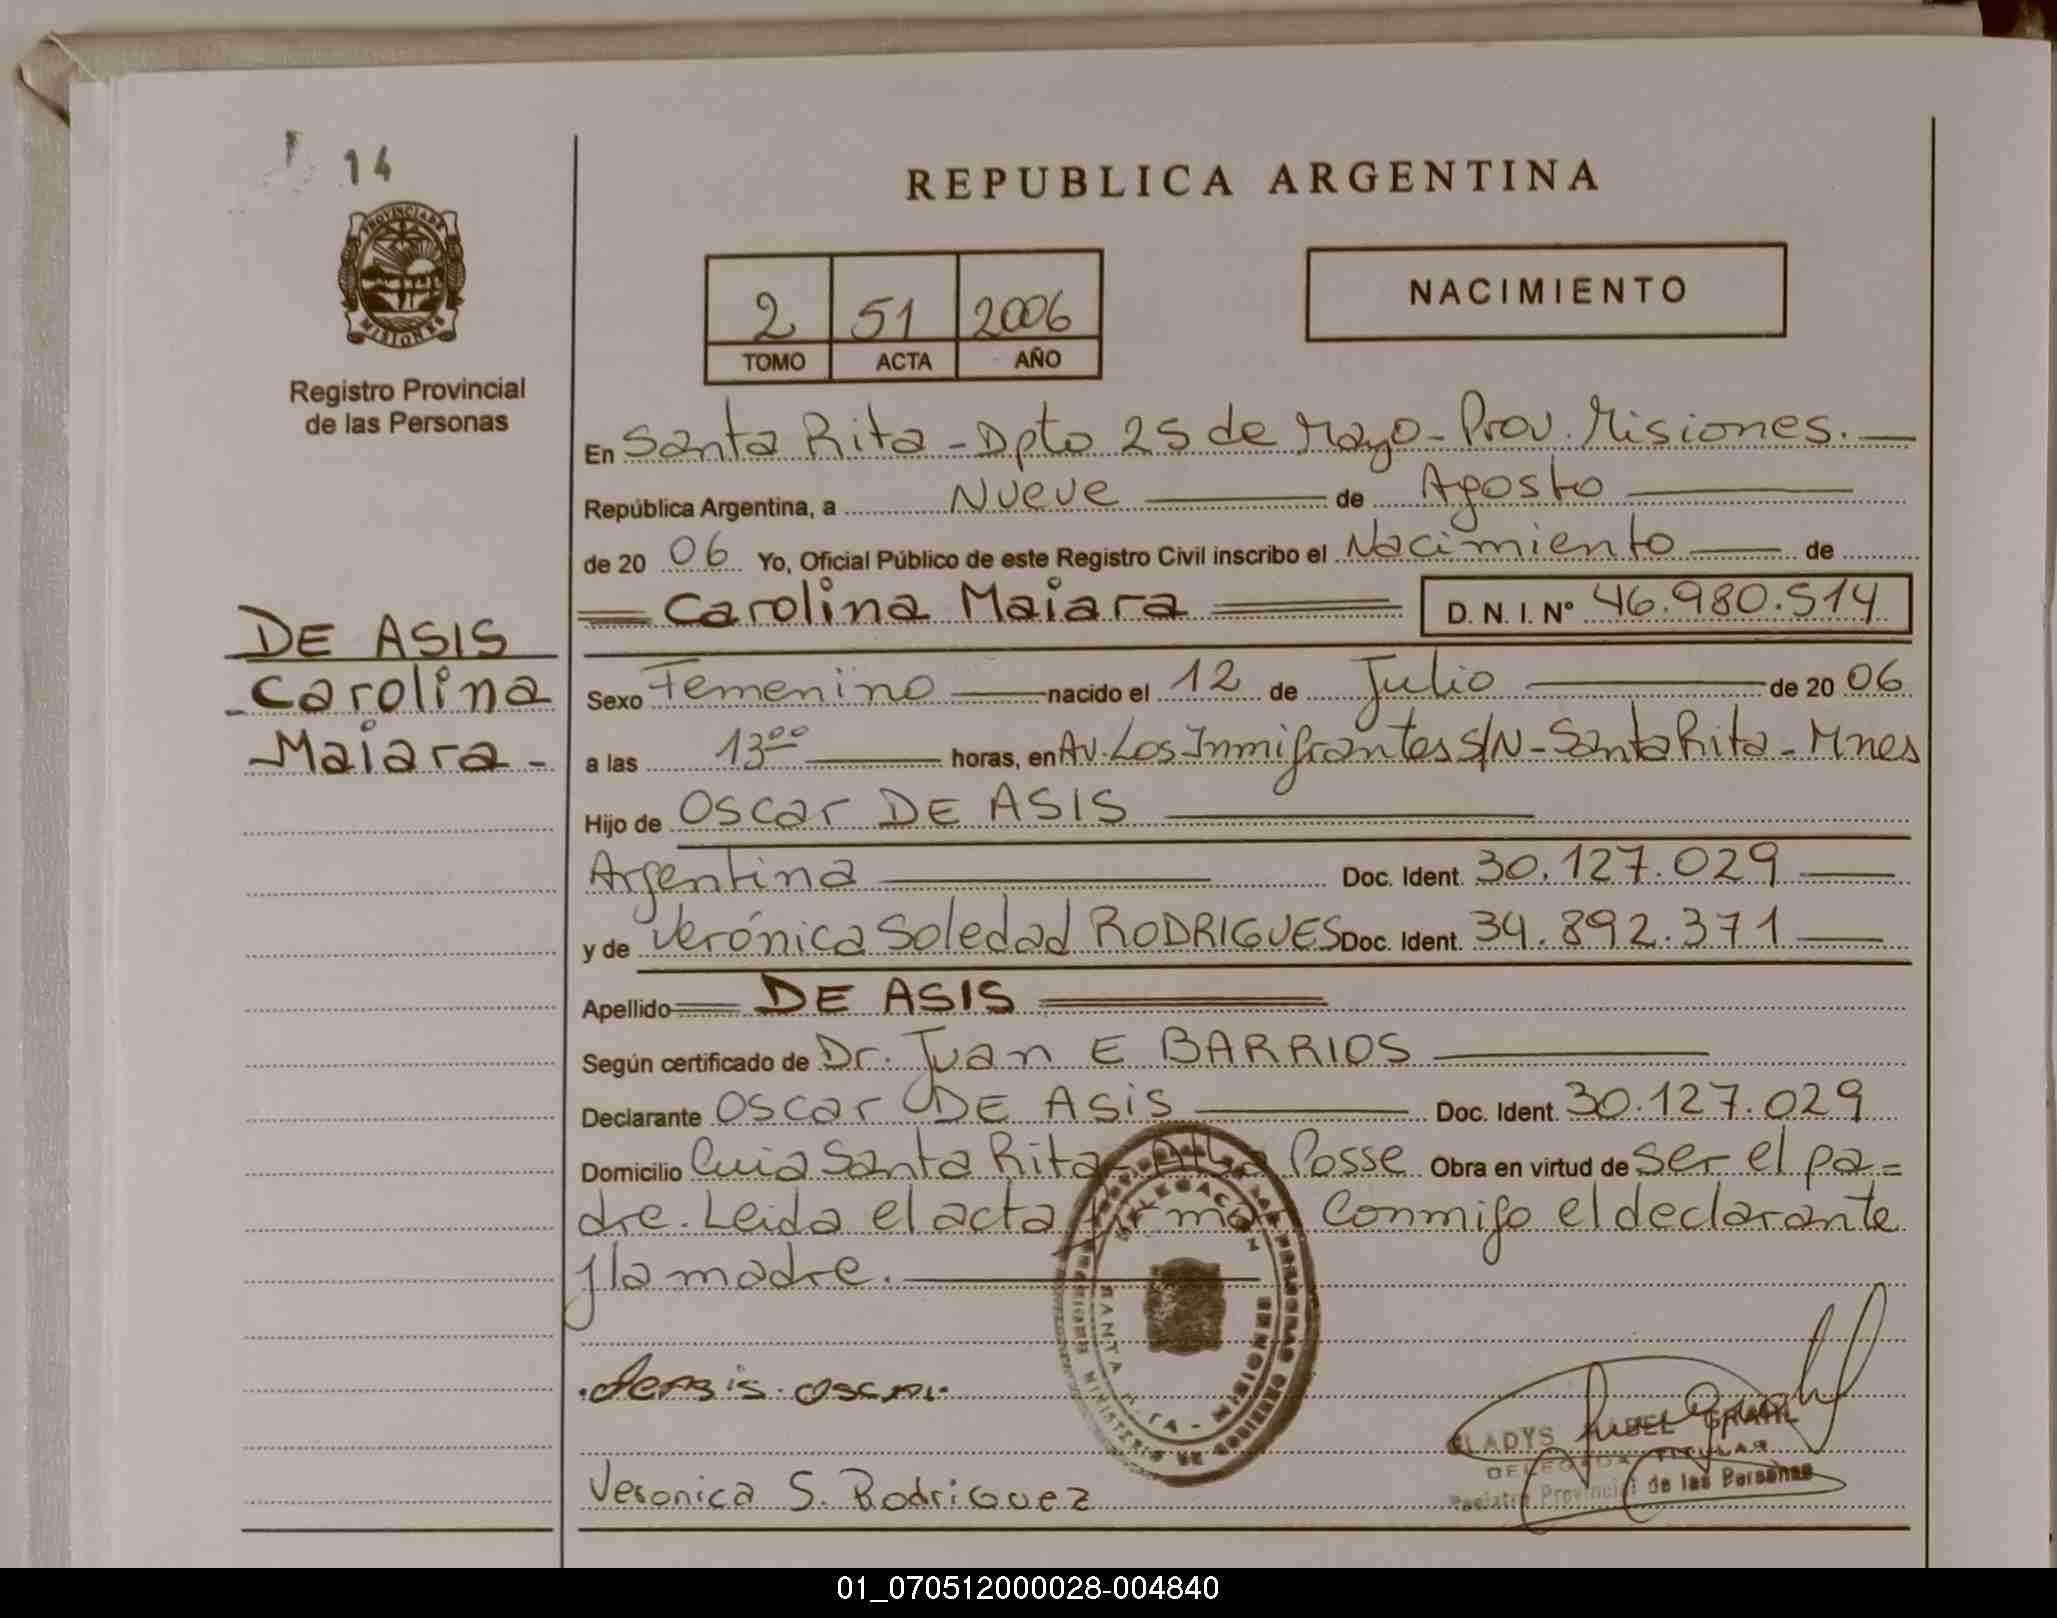 14
PROVINCIA DE
MISIONES
Registro Provincial
de las Personas
DE ASIS
Carolina
Maiara -
REPUBLICA ARGENTINA
2 51 2006
TOMO ACTA AÑO
NACIMIENTO
En Santa Rita - Dpto 25 de Mayo - Prov. Misiones.
República Argentina, a Nueve de Agosto
de 20 06 Yo, Oficial Público de este Registro Civil inscribo el Nacimiento de
Carolina Maiara D. N. I. Nº 46.980.514
Sexo Femenino nacido el 12 de Julio de 20 06
a las 13 00 horas, en Av. Los Inmigrantes S/N - Santa Rita - Mnes
Hijo de Oscar DE ASIS
Argentina Doc. Ident. 30.127.029
y de Verónica Soledad RODRIGUES Doc. Ident. 34.892.371
Apellido DE ASIS
Según certificado de Dr. Juan E BARRIOS
Declarante Oscar DE ASIS Doc. Ident. 30.127.029
Domicilio Santa Rita - Alba Posse Obra en virtud de ser el pa=
dre. Leida el acta firman conmigo el declarante
y la madre.
DELEGACION
SANTA RITA - MISIONES
MINISTERIO DE
deAsis Oscar
Veronica S. Rodriguez
GLADYS MABEL GRAHL
DELEGADA TITULAR
Registro Provincial de las Personas
01_070512000028-004840